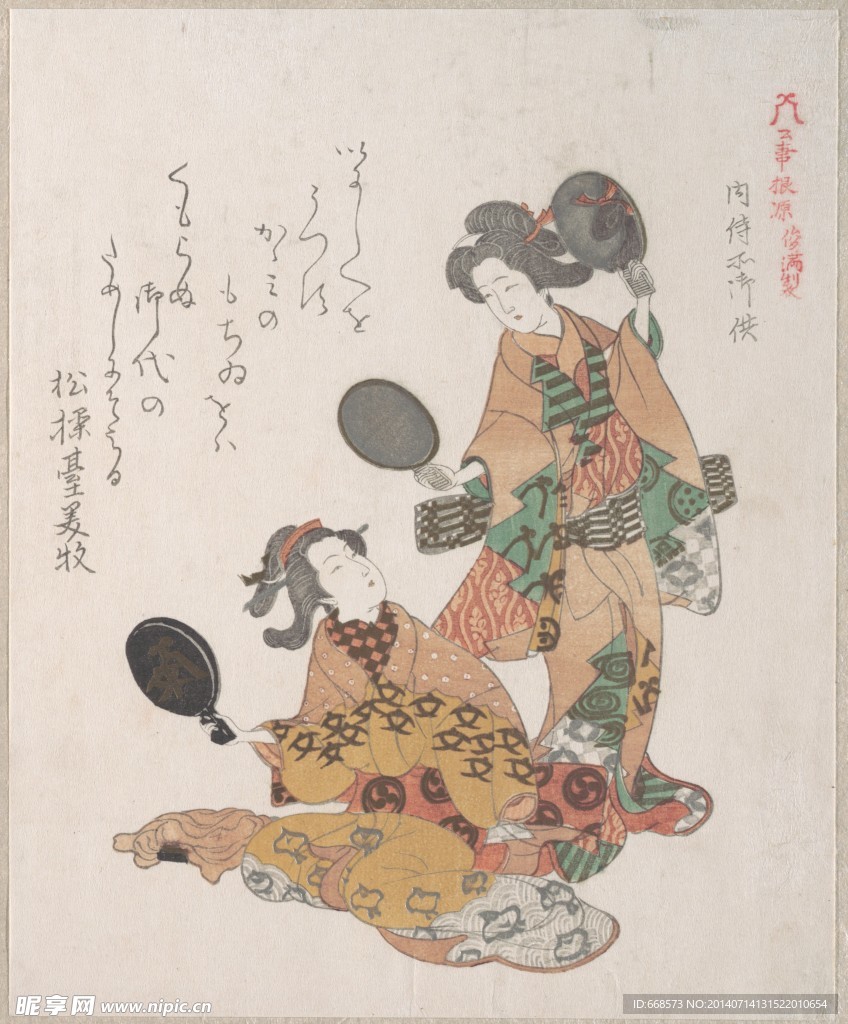 公事根源 俊満製
内侍所御供
うつす
かゝみの
もちゐをハ
くもらぬ
御代の
ためしにそ
松操臺美牧
昵享网 www.nipic.cn
ID:668573 NO:20140714131522010654